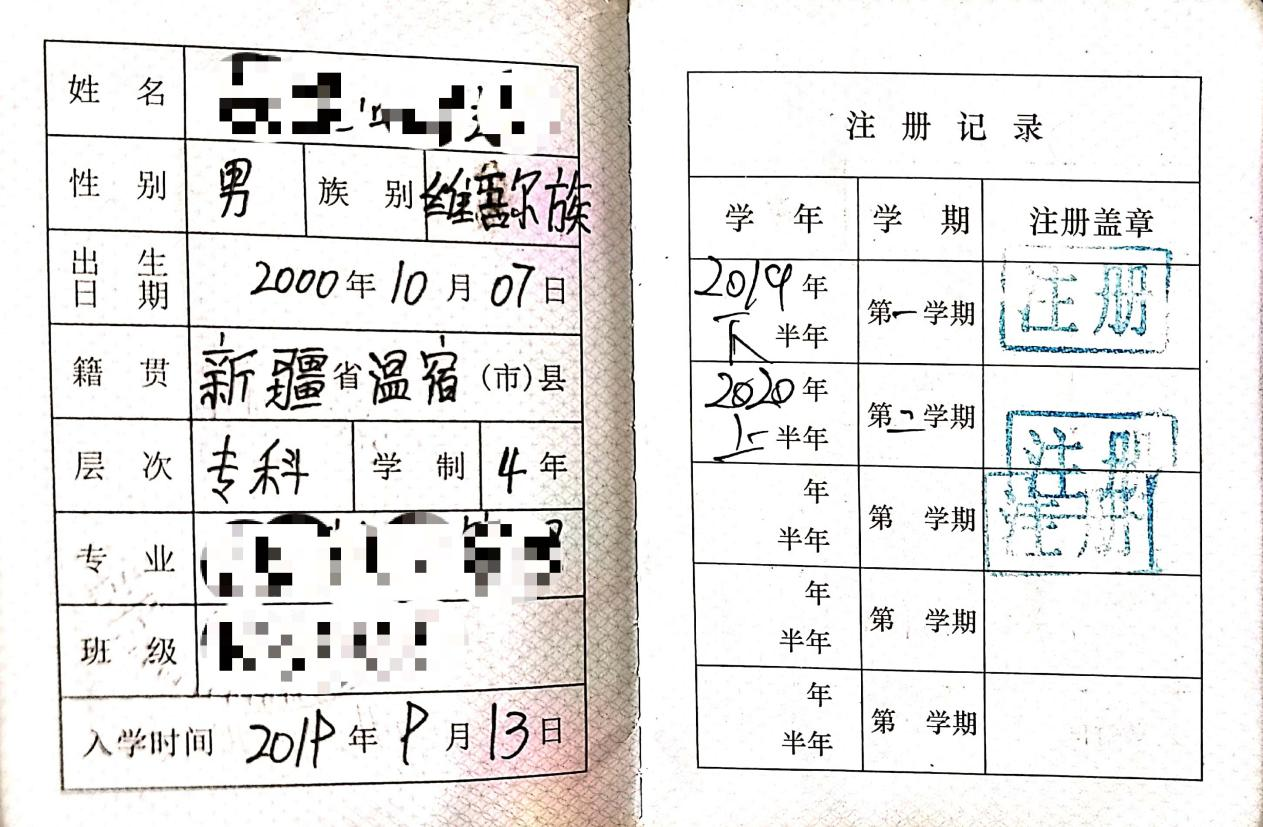 姓 名
性 别 男 族 别 维吾尔族
出 生 日 期 2000年10月07日
籍 贯 新疆省温宿(市)县
层 次 专科 学 制 4年
专 业
班 级
入学时间 2019年9月13日
注 册 记 录
学 年 学 期 注册盖章
2019年 下半年 第一学期 注册
2020年 上半年 第二学期 注册
年 半年 第 学期 注册
年 半年 第 学期
年 半年 第 学期